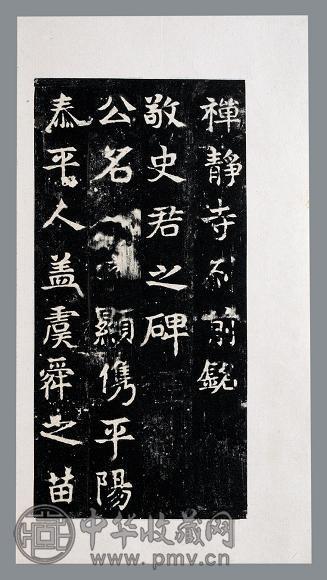 禪靜寺刹前銘
敬史君之碑
公名顯儁平陽
泰平人盖虞舜之苗
中华收藏网
www.pmv.cn